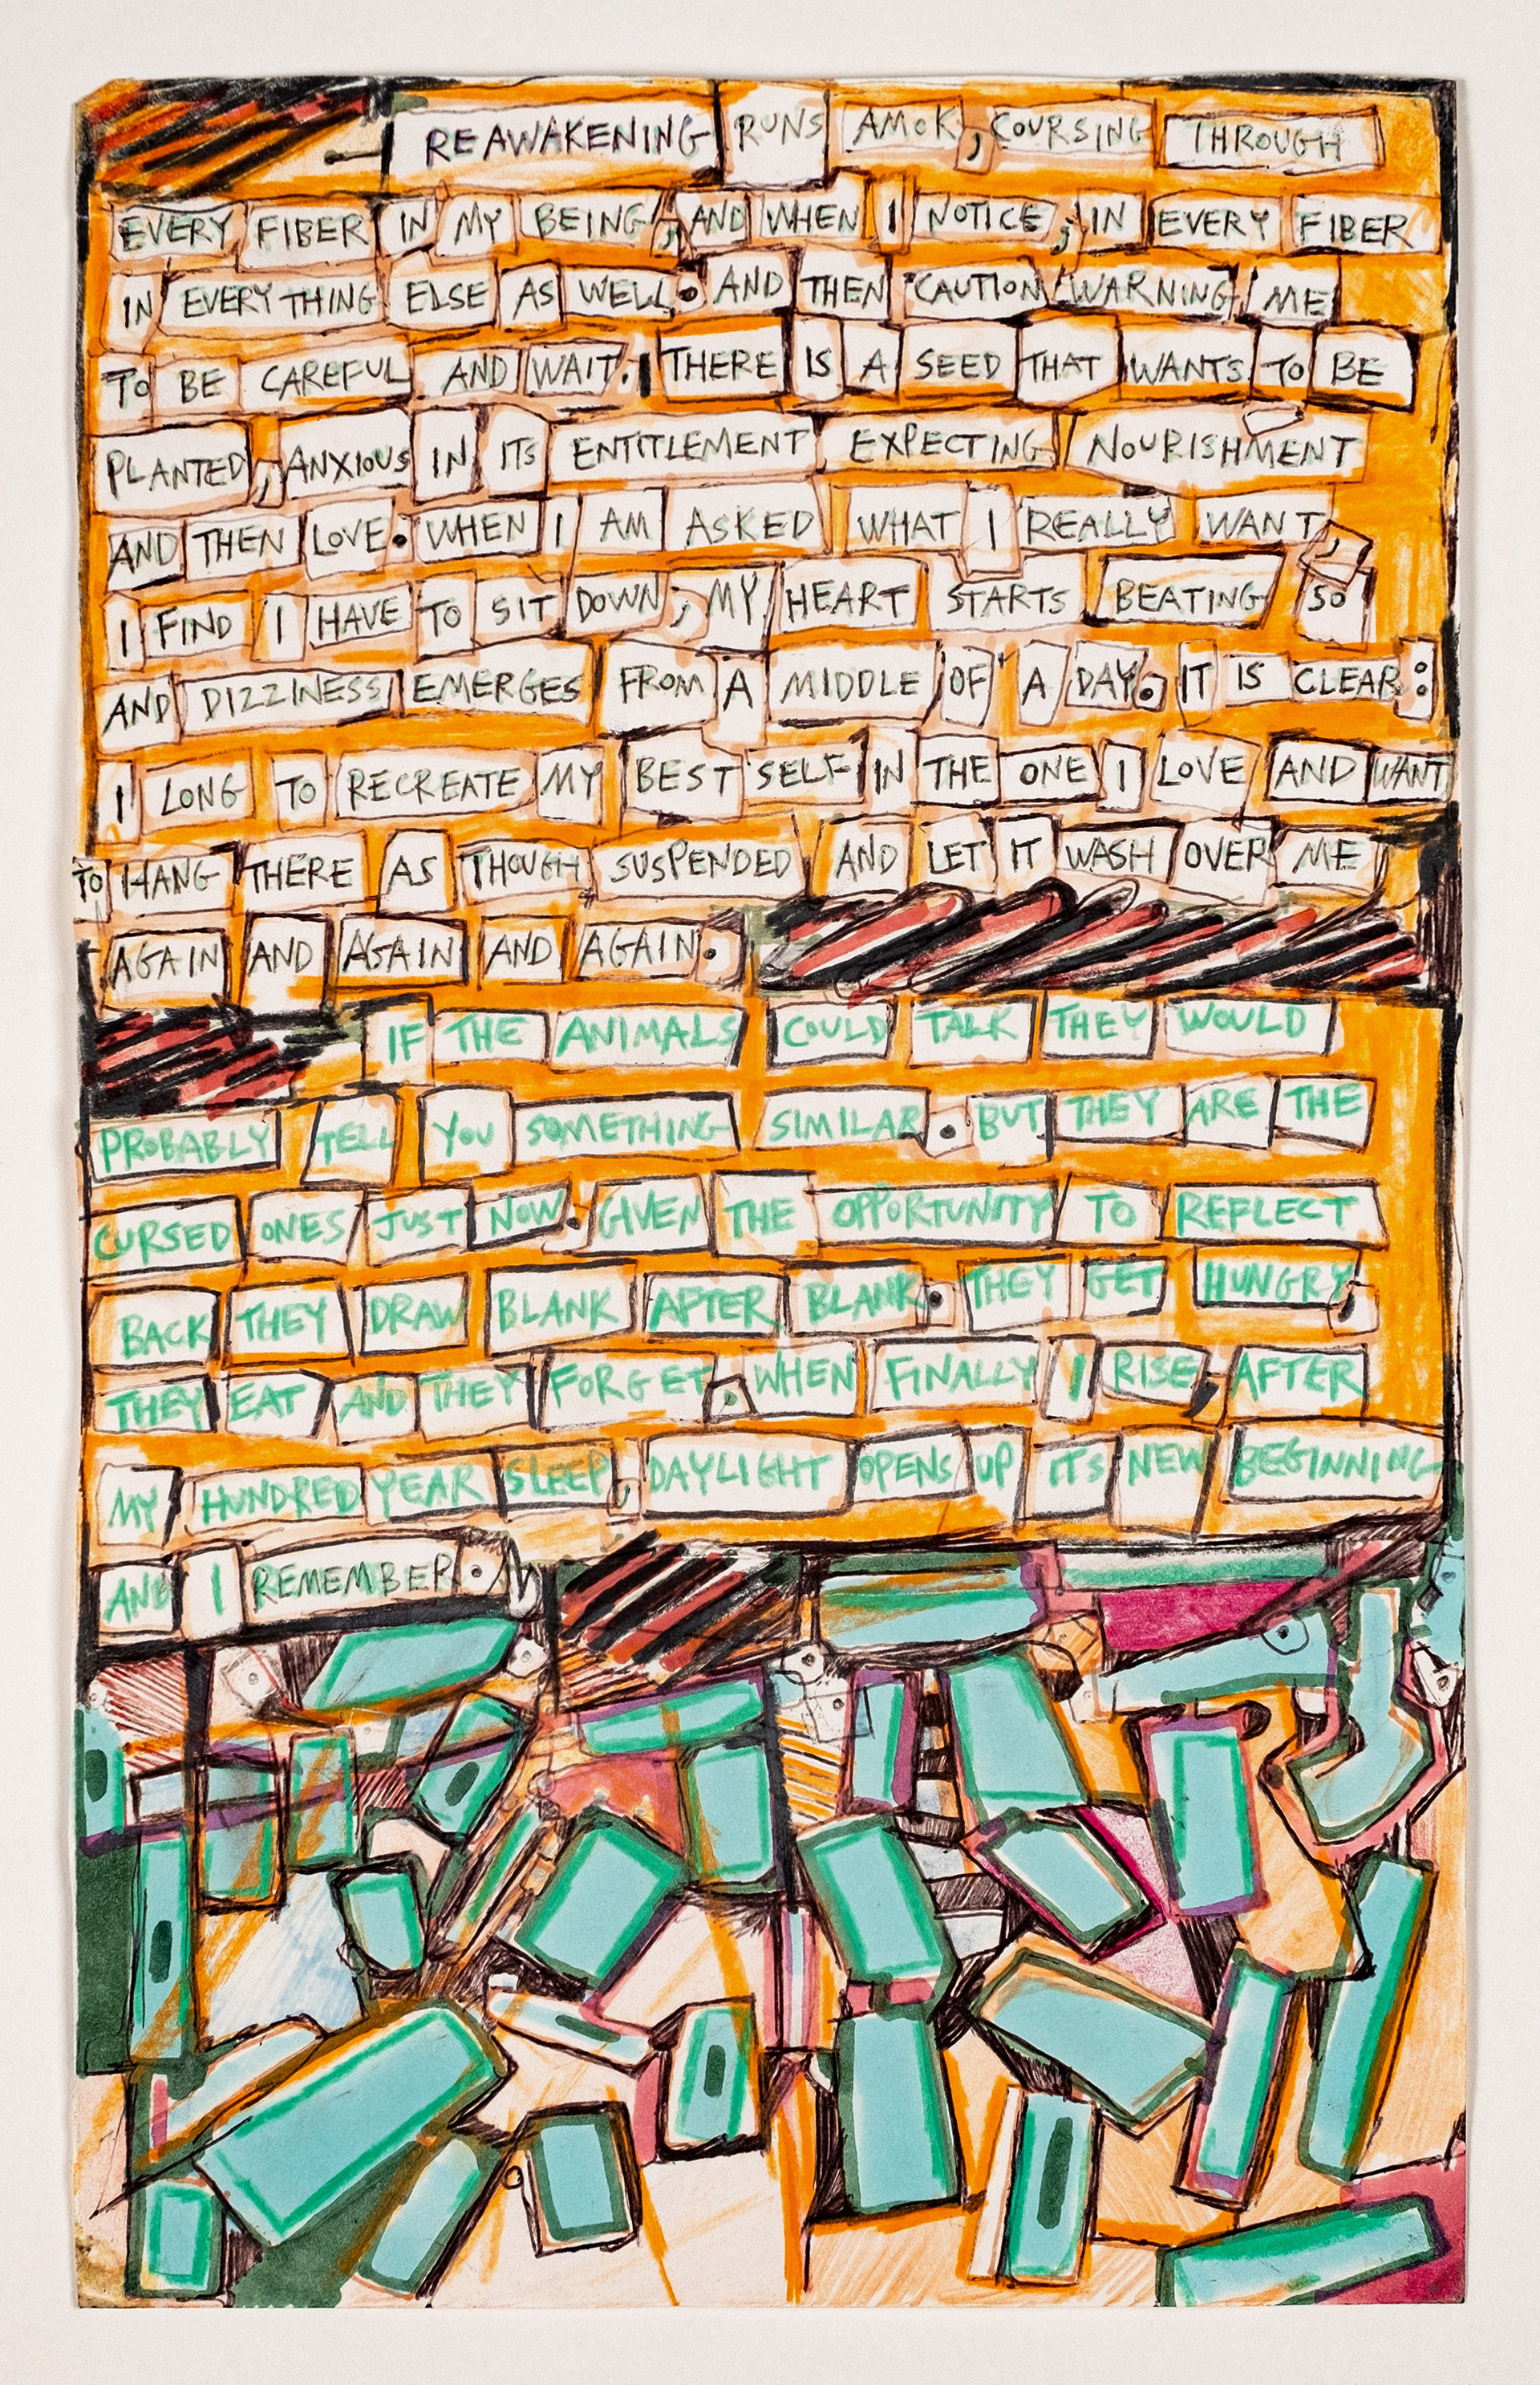 REAWAKENING RUNS AMOK, COURSING THROUGH
EVERY FIBER IN MY BEING, AND WHEN I NOTICE, IN EVERY FIBER
IN EVERYTHING ELSE AS WELL. AND THEN CAUTION WARNING ME
TO BE CAREFUL AND WAIT. THERE IS A SEED THAT WANTS TO BE
PLANTED, ANXIOUS IN ITS ENTITLEMENT EXPECTING NOURISHMENT
AND THEN LOVE. WHEN I AM ASKED WHAT I REALLY WANT,
I FIND I HAVE TO SIT DOWN, MY HEART STARTS BEATING SO
AND DIZZINESS EMERGES FROM A MIDDLE OF A DAY. IT IS CLEAR:
I LONG TO RECREATE MY BEST SELF IN THE ONE I LOVE AND WANT
TO HANG THERE AS THOUGH SUSPENDED AND LET IT WASH OVER ME
AGAIN AND AGAIN AND AGAIN.
IF THE ANIMALS COULD TALK THEY WOULD
PROBABLY TELL YOU SOMETHING SIMILAR. BUT THEY ARE THE
CURSED ONES JUST NOW. GIVEN THE OPPORTUNITY TO REFLECT
BACK THEY DRAW BLANK AFTER BLANK. THEY GET HUNGRY,
THEY EAT AND THEY FORGET. WHEN FINALLY I RISE, AFTER
MY HUNDRED YEAR SLEEP, DAYLIGHT OPENS UP ITS NEW BEGINNING
AND I REMEMBER.